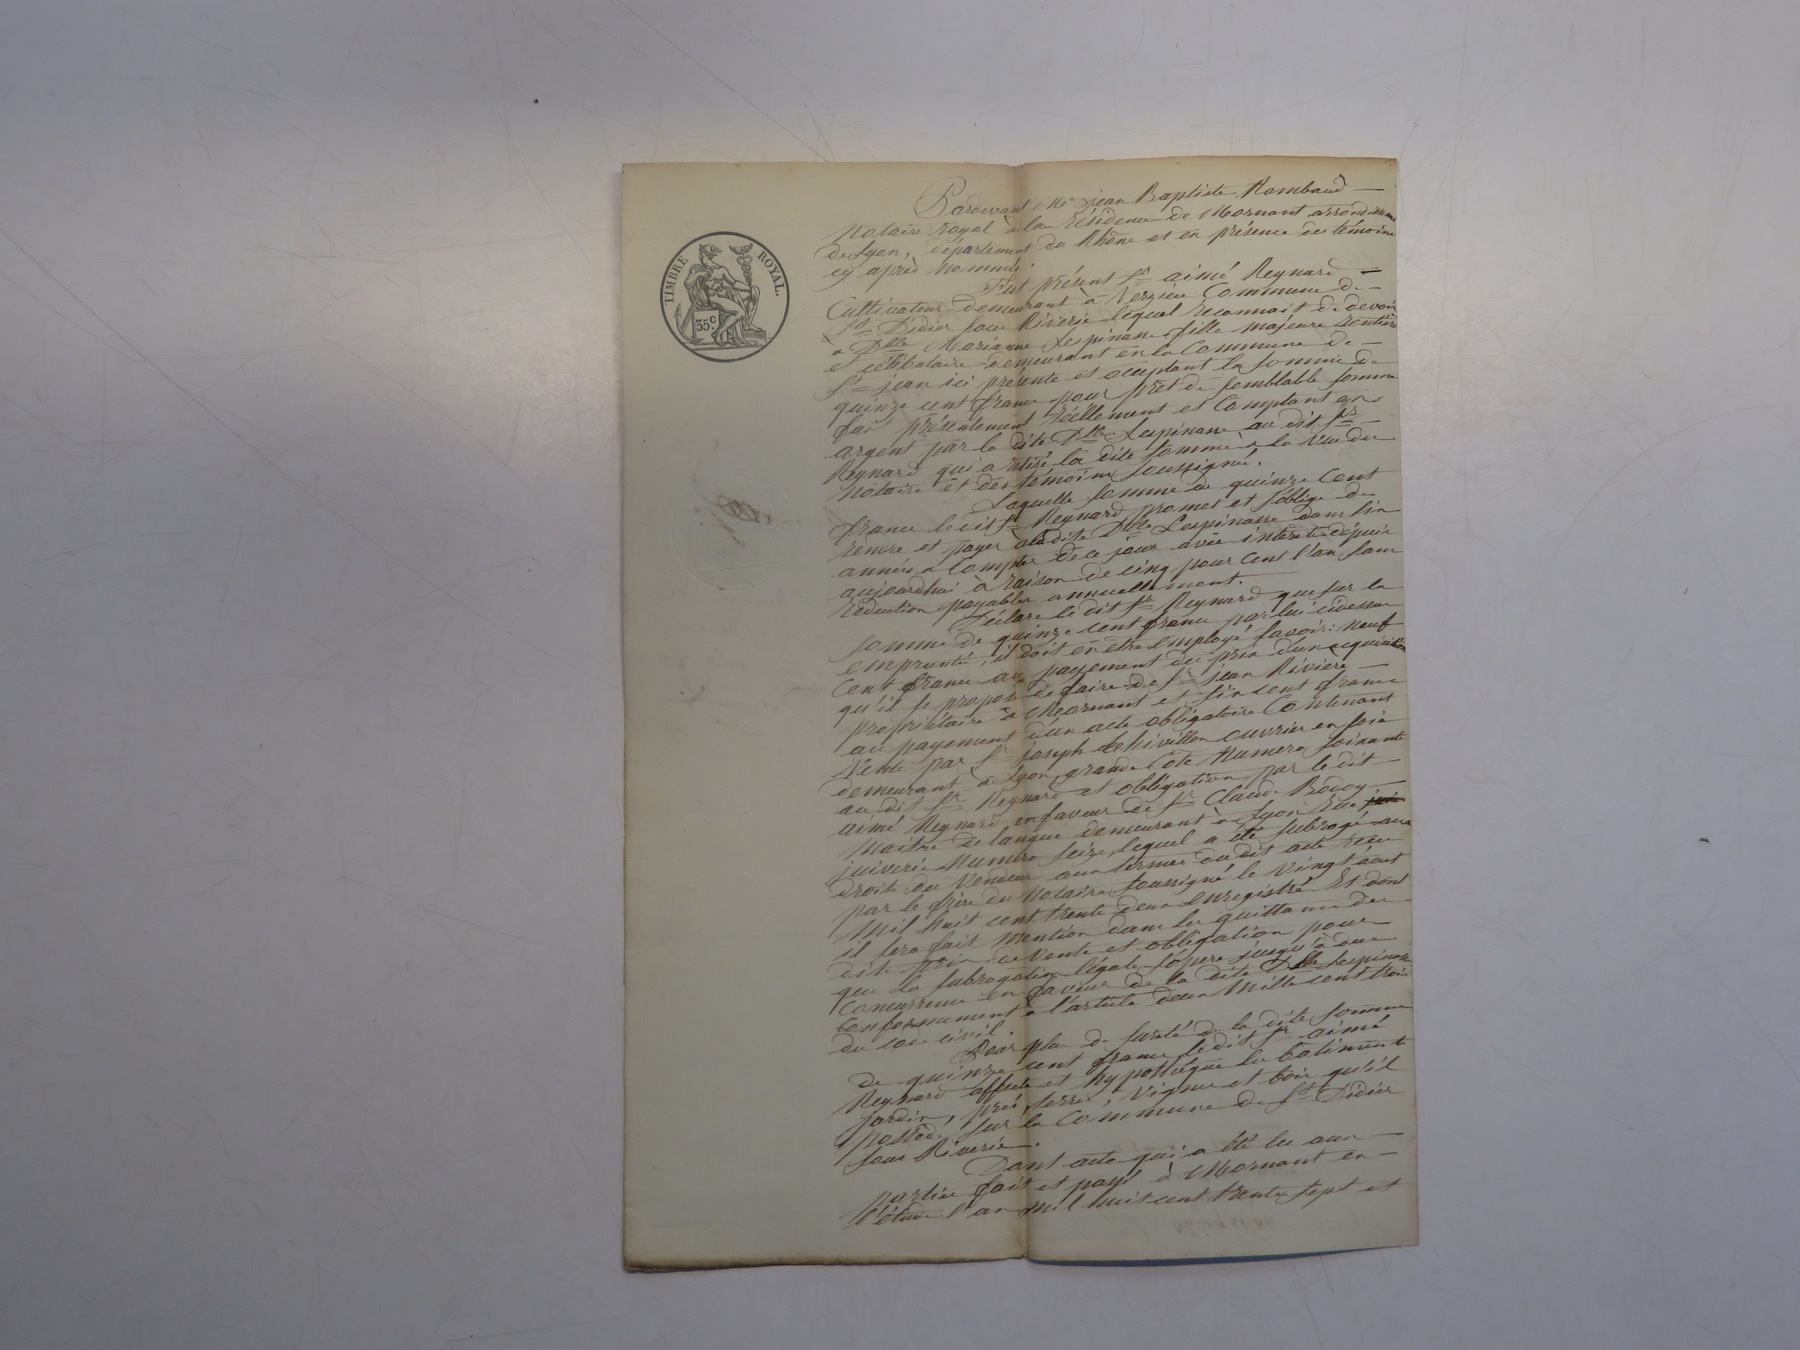 TIMBRE ROYAL.
35c
Pardevant Me Jean Baptiste Rambaud
Notaire royal à la Résidence de Mornant arrondissem
de Lyon, département du Rhône et en présence des témoins
cy après nommés.
Fut présent Sr aimé Reynard
Cultivateur demeurant à Commune de
St Didier sous Riverie lequel reconnait de devoir
a Dlle Marianne Lespinasse fille majeure rentière
et célibataire demeurant en la Commune de
St jean ici présente et acceptant la somme de
quinze cent francs pour prêt de semblable somme
fait présentement réellement et Comptant en
argent par la dite Dlle Lespinasse au dit Sr
Reynard qui a retiré la dite somme à la vue du
Notaire et des témoins soussignés.
Laquelle somme de quinze Cent
francs le dit Sr Reynard promet et s'oblige de
rendre et payer à ladite Dlle Lespinasse dans six
années a Compter de ce jour avec intérêts depuis
aujourdhui à raison de cinq pour Cent l'an sans
réduction payables annuellement.
Déclare le dit Sr Reynard que sur la
somme de quinze cent francs par lui cidessus
emprunté, il doit en être employé savoir: Neuf
Cent francs au payement du prix d'un acquisition
qu'il se propose de faire de Sr jean Rivière
propriétaire à Mornant et six cent francs
au payement d'un acte obligatoire Contenant
Vente par Sr joseph ouvrier en soie
demeurant à Lyon, grande Côte Numéro soixante
au dit Sr Reynard et obligation par le dit
aimé Reynard en faveur de Sr Claude
Maître de langue demeurant à Lyon Rue
juiverie Numéro seize, lequel a été subrogé aux
droits du Vendeur aux termes du dit acte reçu
par le frère du Notaire soussigné le Vingt août
Mil huit cent trente deux enregistré Et dont
il sera fait mention dans la quittance des
dits prix de Vente et obligation pour
que la subrogation légale s'opère jusqu'à due
Concurrence en faveur de la dite Dlle Lespinasse
Conformément à l'article deux Mille cent trois
du code civil.
Pour plus de sureté de la dite somme
de quinze cent francs le dit Sr aimé
Reynard affecte et hypothèque les batiments
jardin, prés, terres, Vignes et bois qu'il
possède sur la Commune de St Didier
sous Riverie.
Dont acte qui a été lu aux
parties fait et passé à Mornant en
l'étude l'an mil huit cent trente sept et